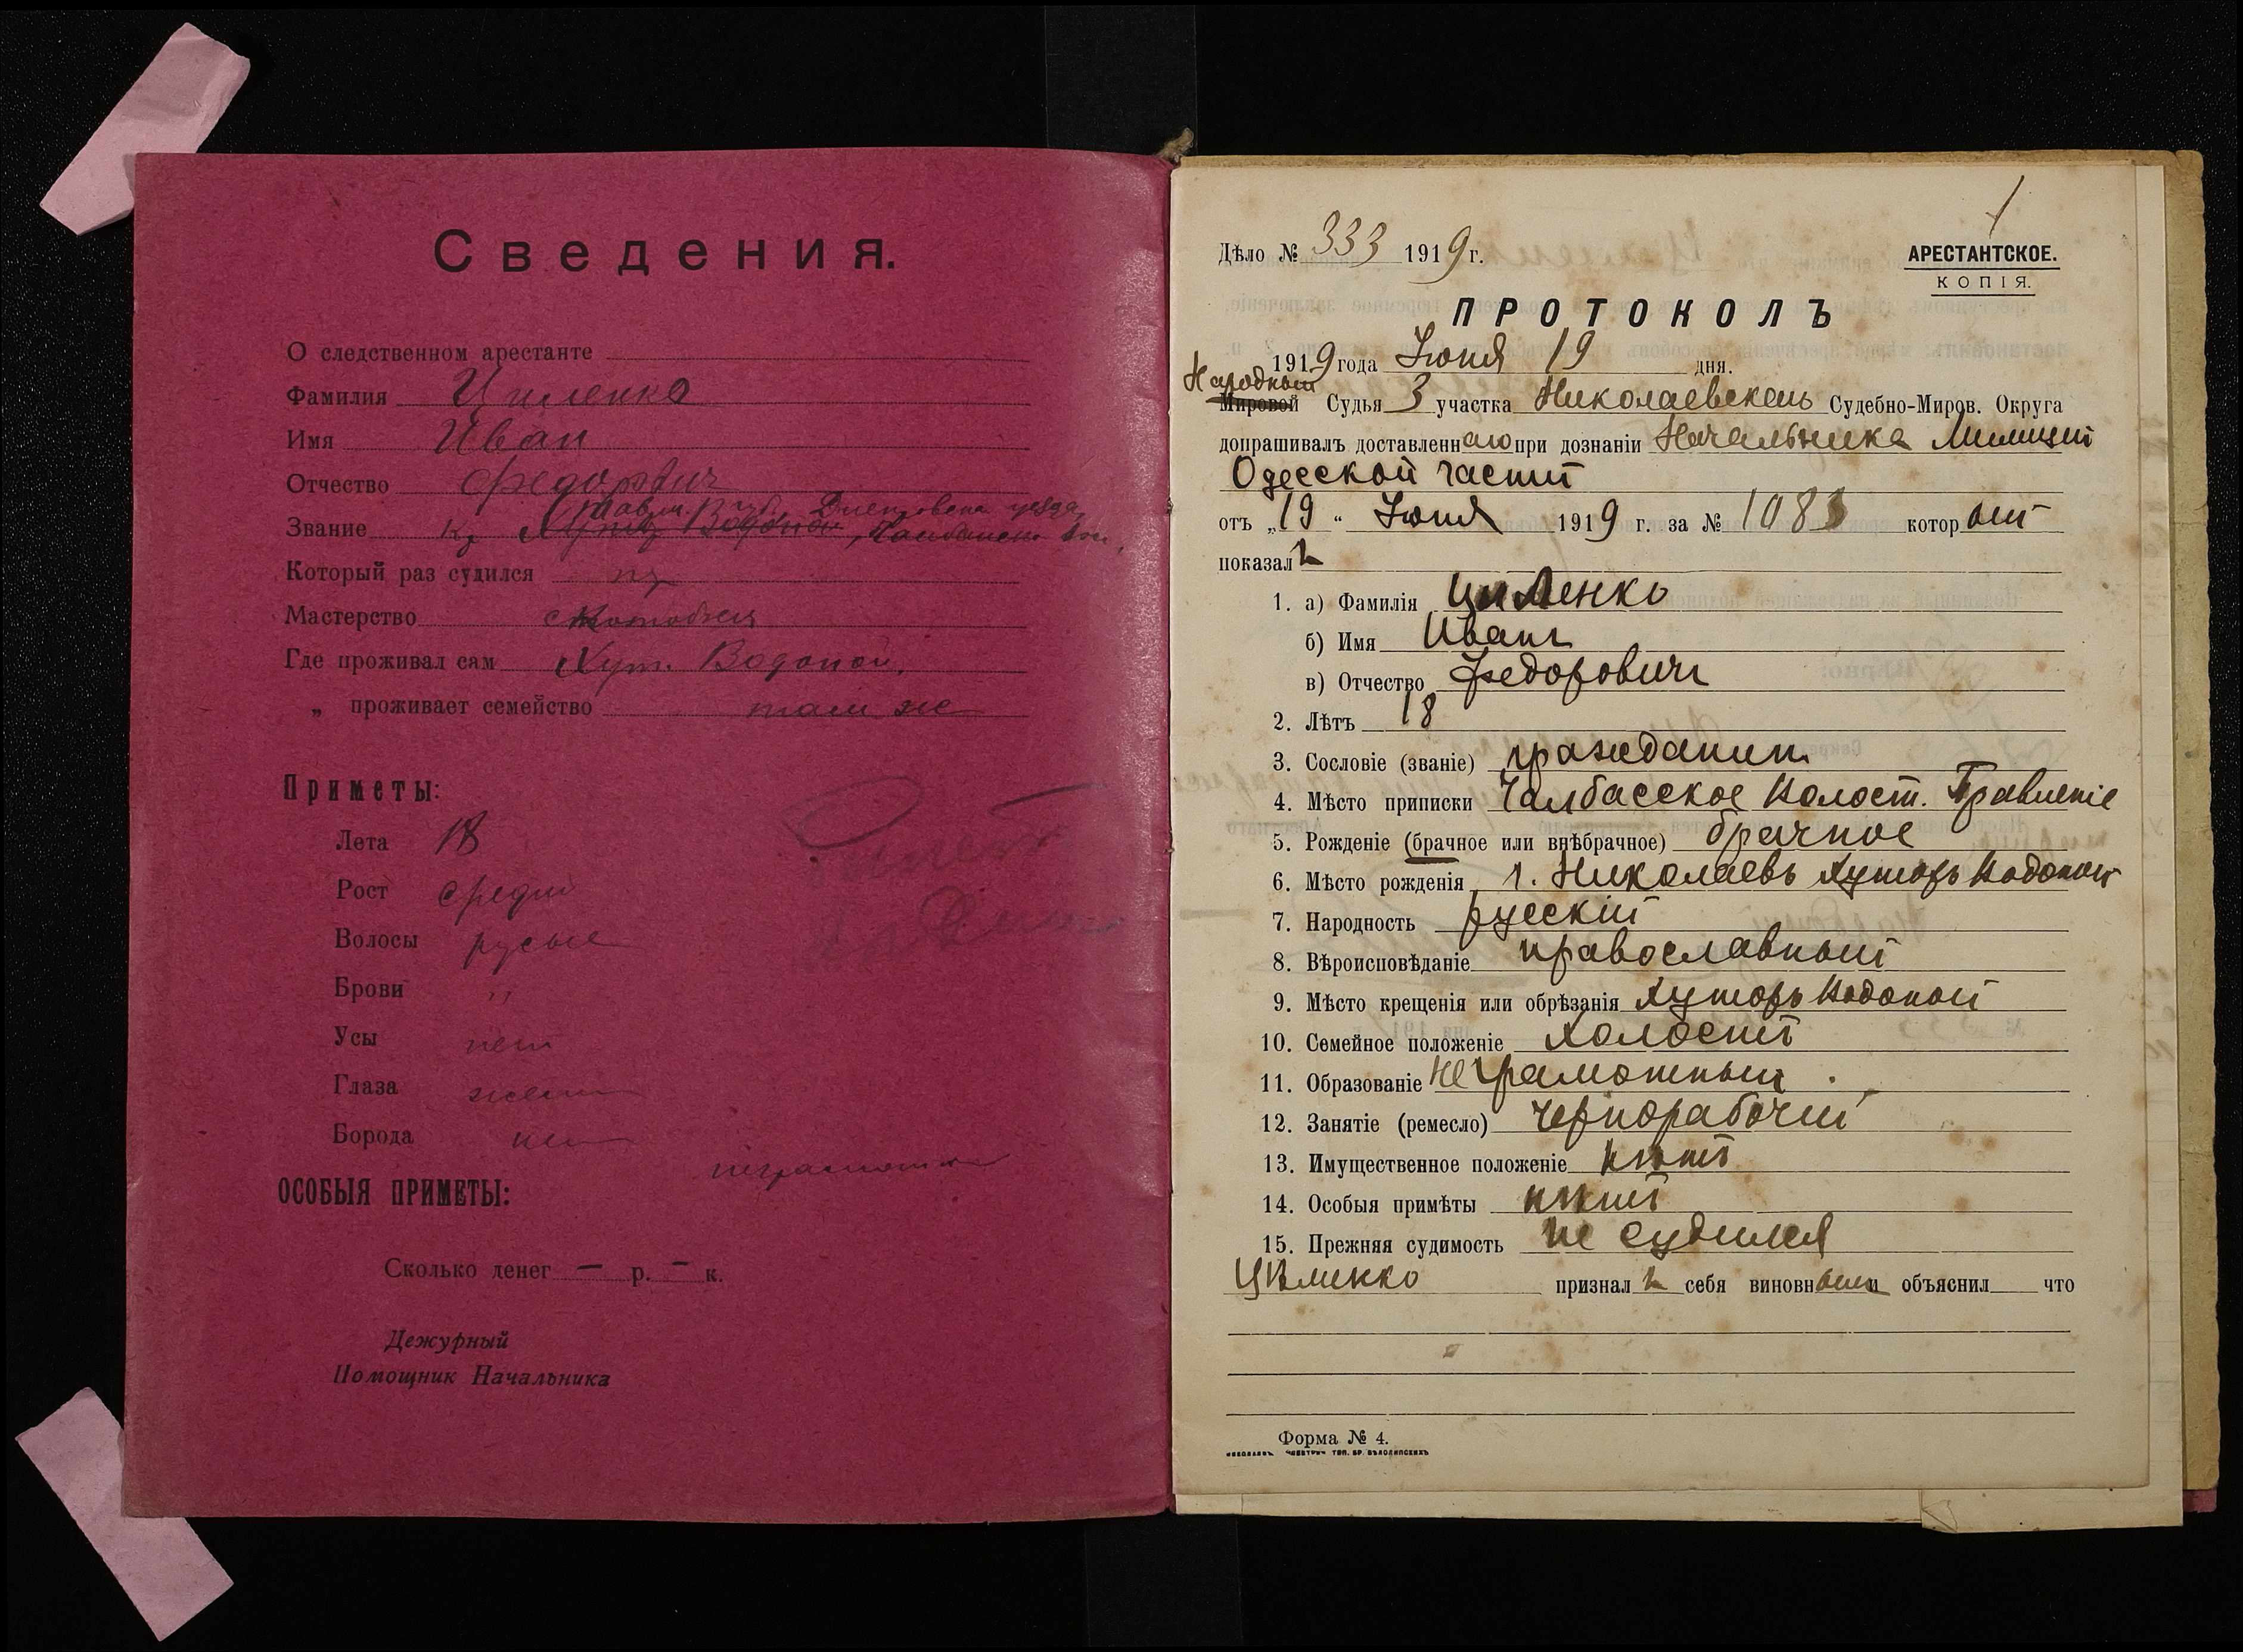 Сведения.
О следственном арестанте
Фамилия Циленко
Имя Иван
Отчество Федорович
Таврич. губ. Днепровска уезда,
Звание Кр. Хутор Водопой, Чалбасск. вол.
Который раз судился
Мастерство
Где проживал сам Хут. Водопой.
„ проживает семейство там же
Приметы:
Лета 18
Рост средн
Волосы русые
Брови "
Усы нет
Глаза
Борода нет
неграмотн
ОСОБЫЯ ПРИМЕТЫ:
Сколько денег — р. — к.
Дежурный
Помощник Начальника
1
Дѣло № 333 1919 г.
АРЕСТАНТСКОЕ.
КОПІЯ.
ПРОТОКОЛЪ
1919 года Іюня 19 дня.
Народный
Мировой Судья 3 участка Николаевскаго Судебно-Миров. Округа
допрашивалъ доставленнаго при дознаніи Начальника Милиціи
Одесской части
отъ „19“ Іюня 1919 г. за № 1083 который
показалъ
1. а) Фамилія Циленко
б) Имя Иванъ
в) Отчество Федоровичъ
2. Лѣтъ 18
3. Сословіе (званіе) гражданин
4. Мѣсто приписки Чалбасское Волост. Правленіе
5. Рожденіе (брачное или внѣбрачное) брачное
6. Мѣсто рожденія г. Николаевъ Хуторъ Водопой
7. Народность русскій
8. Вѣроисповѣданіе православный
9. Мѣсто крещенія или обрѣзанія Хуторъ Водопой
10. Семейное положеніе Холостъ
11. Образованіе неграмотный
12. Занятіе (ремесло) Чернорабочій
13. Имущественное положеніе нѣтъ
14. Особыя примѣты нѣтъ
15. Прежняя судимость не судился
Циленко призналъ себя виновнымъ и объяснил что
Форма № 4.